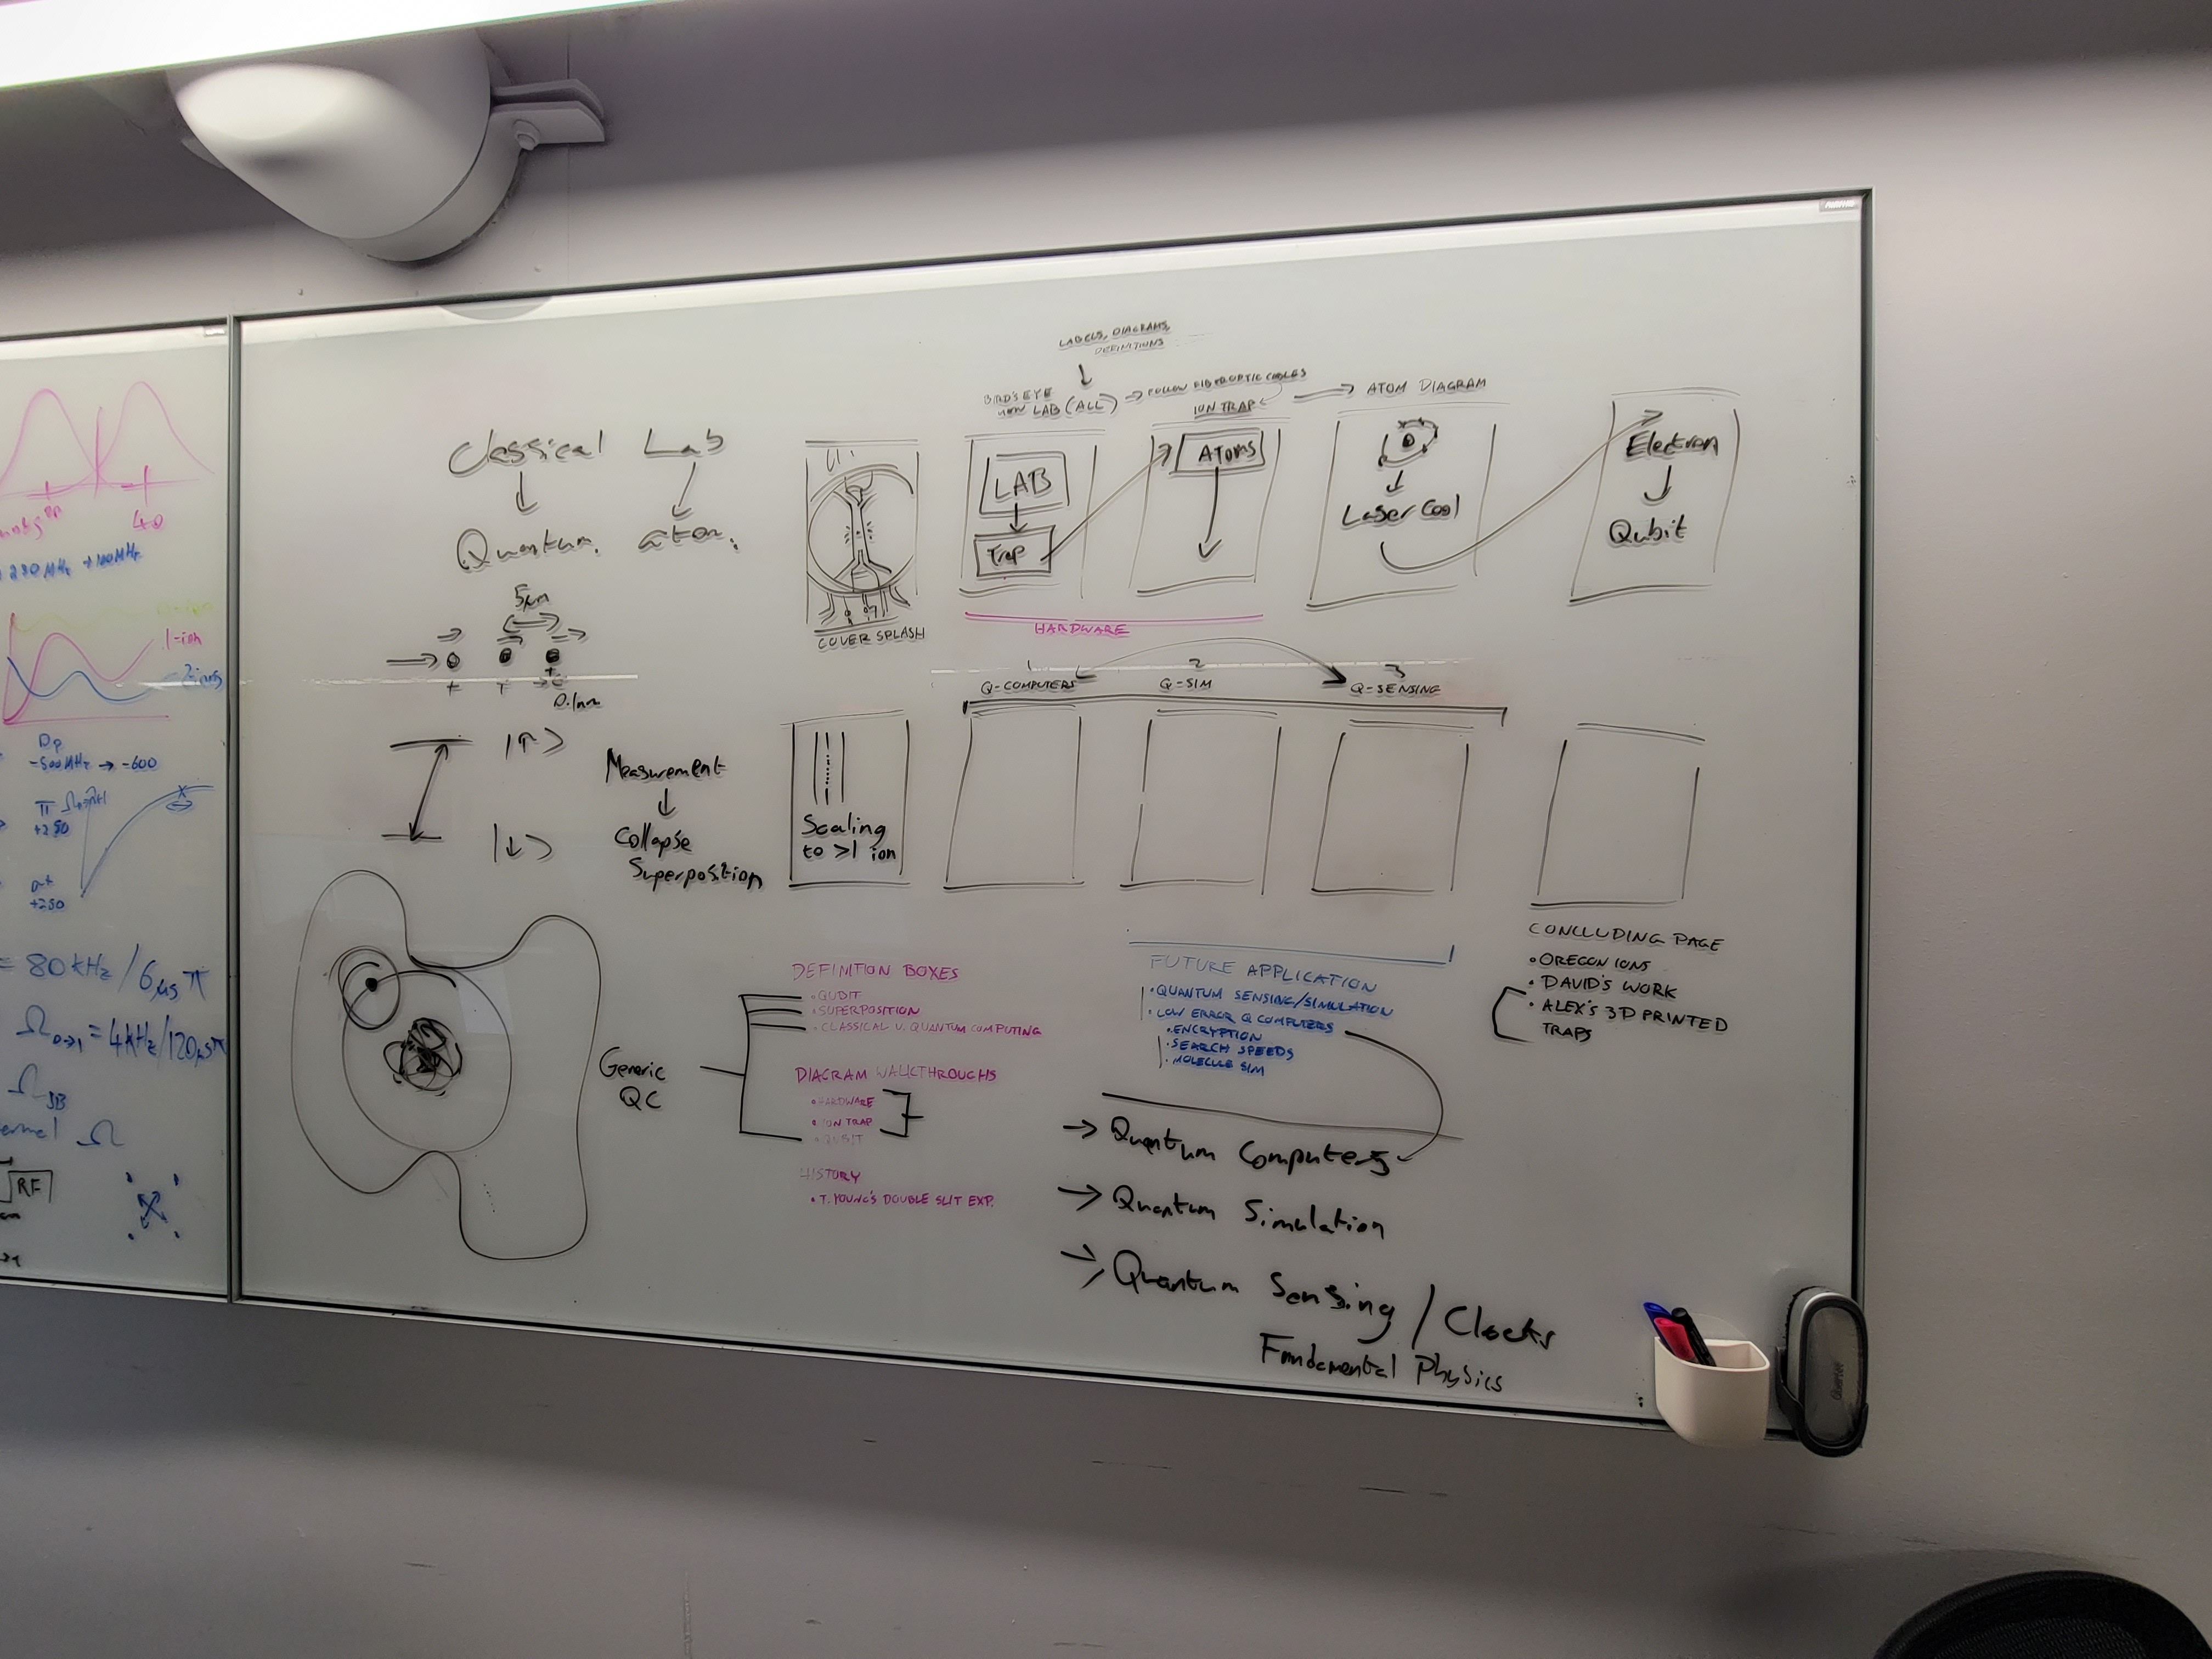 40
1-ion
2 ions
Dp
-500MHz → -600
π
+250
at
+250
= 80 kHz / 6μs π
Ω0→1 = 4kHz/120μs π
Ω
Ω
RF
Classical Lab
Quantum. atom.
5μm
+ + +
0.1nm
|↑>
|↓>
Measurment
↓
Collapse
Superposition
LABELS, DIAGRAMS,
DEFINITIONS
↓
BIRD'S EYE
VIEW LAB (ALL) → FOLLOW FIBEROPTIC CABLES
ION TRAP
→ ATOM DIAGRAM
COVER SPLASH
LAB
↓
Trap
ATOMS
↓
Laser Cool
Electron
↓
Qubit
HARDWARE
1 2 3
Q-COMPUTERS Q-SIM Q-SENSING
Scaling
to >1 ion
CONCLUDING PAGE
• OREGON IONS
• DAVID'S WORK
• ALEX'S 3D PRINTED
TRAPS
Generic
QC
DEFINITION BOXES
• QUBIT
• SUPERPOSITION
• CLASSICAL V. QUANTUM COMPUTING
DIAGRAM WALKTHROUGHS
• HARDWARE
• ION TRAP
• QUBIT
HISTORY
• T. YOUNG'S DOUBLE SLIT EXP.
FUTURE APPLICATION
• QUANTUM SENSING/SIMULATION
• LOW ERROR Q COMPUTERS
• ENCRYPTION
• SEARCH SPEEDS
• MOLECULE SIM
→ Quantum Computers
→ Quantum Simulation
→ Quantum Sensing / Clocks
Fundamental Physics